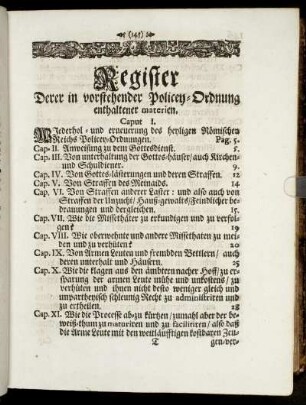 (145)
Register
Derer in vorstehender Policey-Ordnung
enthaltener materien.
Caput I.
Wiederhol- und erneuerung des heyligen Römischen
Reichs Policey-Ordnungen. Pag. 5.
Cap. II. Anweisung zu dem Gottesdienst. 5.
Cap. III. Von unterhaltung der Gottes-häuser/ auch Kirchen-
und Schuldiener. 9.
Cap. IV. Von Gottes-lästerungen und deren Straffen. 12
Cap. V. Von Straffen des Meineids. 14
Cap. VI. Von Straffen anderer Laster: und also auch von
Straffen der Unzucht/ Hauß-gewalts/ Feindlicher be-
drauungen und dergleichen. 15.
Cap. VII. Wie die Missethäter zu erkundigen und zu verfol-
gen? 19
Cap. VIII. Wie oberwehnte und andere Missethaten zu mei-
den und zu verhüten? 20
Cap. IX. Von Armen Leuten und frembden Bettlern/ auch
deren unterhalt und Häusern. 25
Cap. X. Wie die klagen aus den ämbtern nacher Hoff/ zu er-
sparung der armen Leute mühe und unkostens/ zu
verhüten und ihnen nicht desto weniger gleich und
unpartheyisch schleunig Recht zu administriren und
zu ertheilen. 28
Cap. XI. Wie die Processe ab-zu kürtzen/ zumahl aber der be-
weiß-thum zu maturiren und zu faciliiren/ also daß
die Arme Leute mit den weitläufftigen kostbaren Zeu-
T gen/ver-